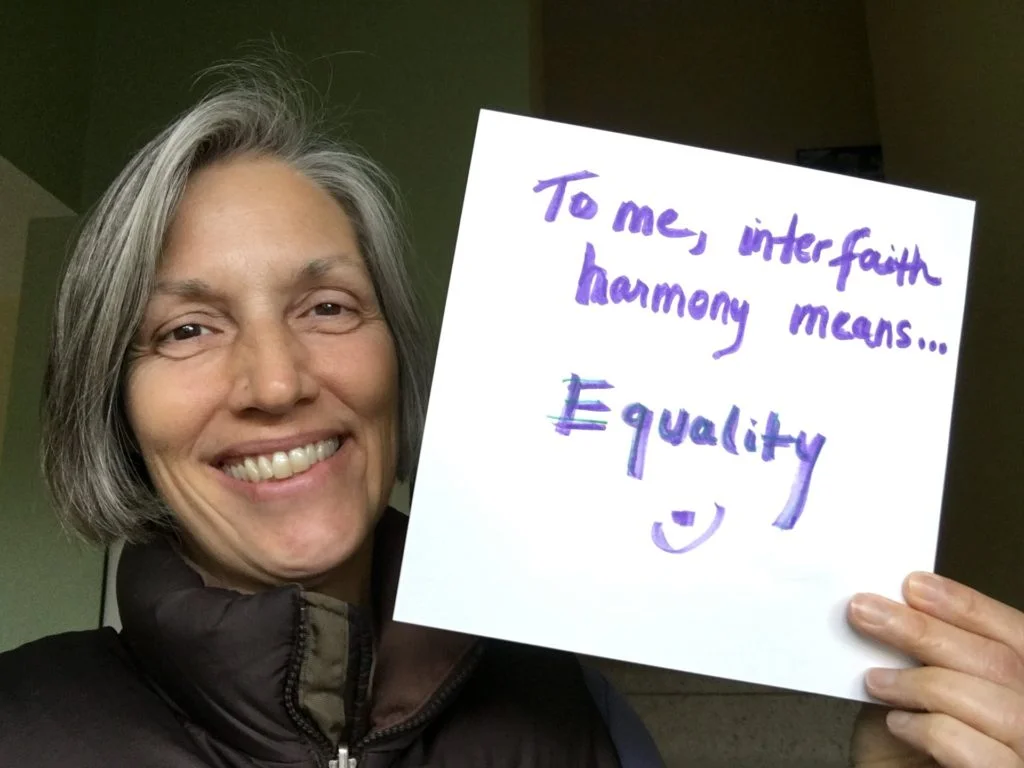 To me, interfaith
harmony means...
Equality